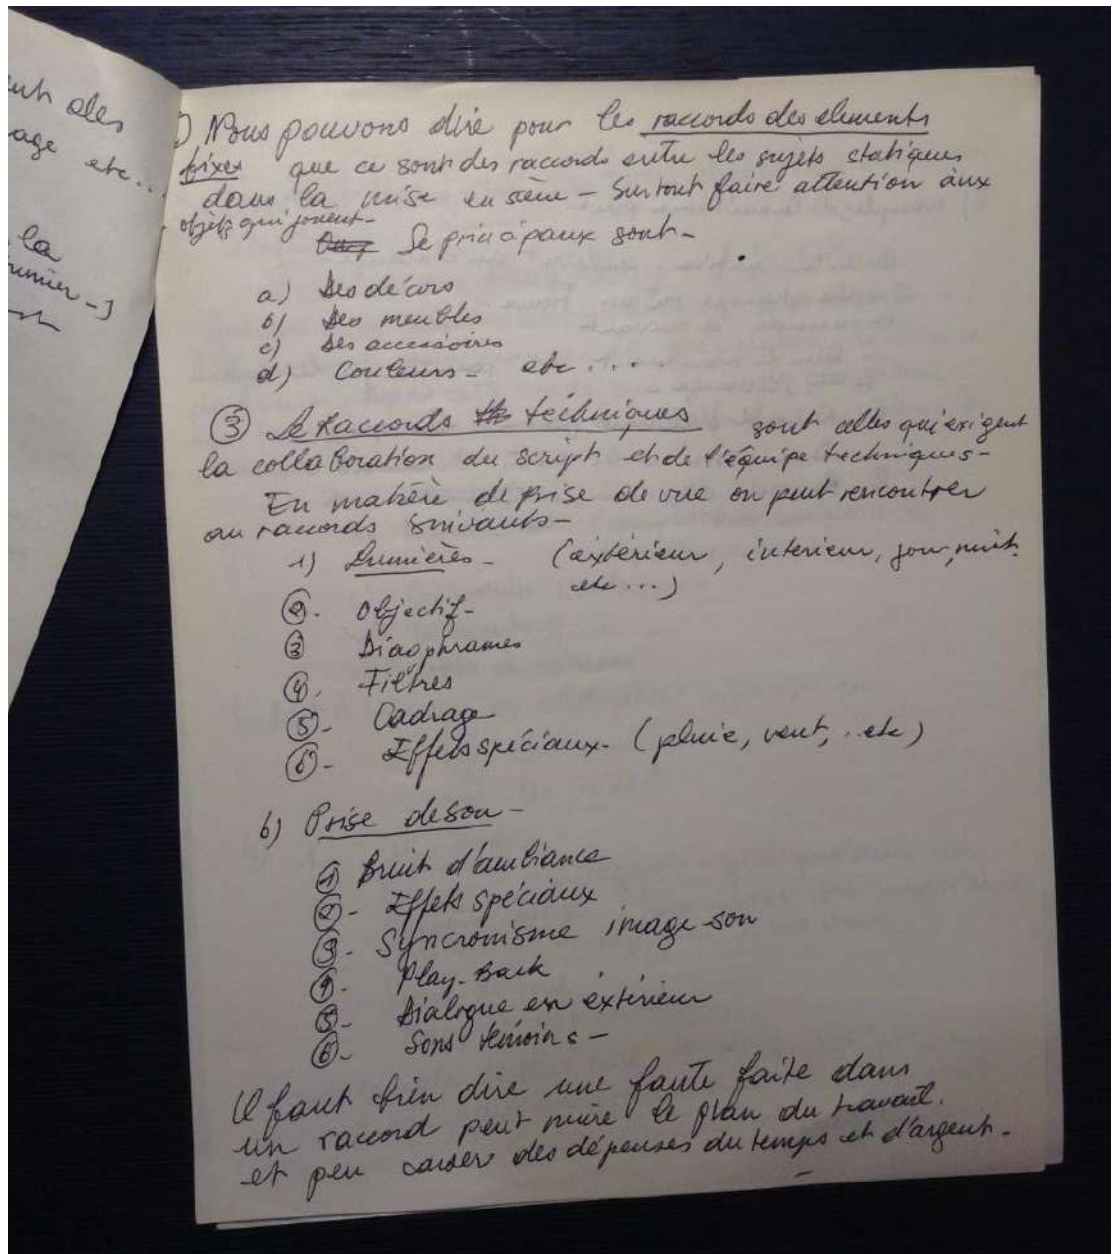 uh des
age etc...
la
) Nous pouvons dire pour les raccords des elements
fixes que ce sont des raccords entre les sujets statiques
dans la mise en scène - Surtout faire attention aux
objets qui jouent -
Le principaux sont -
a) Des décors
b) Des meubles
c) Des accessoires
d) Couleurs - etc....
③ Le Raccords techniques sont celles qui exigent
la collaboration du script et de l'équipe techniques -
En matière de prise de vue on peut rencontrer
au raccords suivants -
1) Lumières - (extérieur, interieur, jour, nuit
etc...)
②. Objectif -
③ Diaophrames
④. Filtres
⑤. Cadrage
⑥ - Effets spéciaux - (pluie, vent, ..etc)
b) Prise de son -
① Bruit d'ambiance
② - Effets spéciaux
③ - Syncronisme image-son
④. Play-Back
⑤ - Dialogue en extérieur
⑥ - Sons témoins -
Il faut bien dire une faute faite dans
un raccord peut nuire le plan du travail.
et peu causer des dépenses du temps et d'argent -